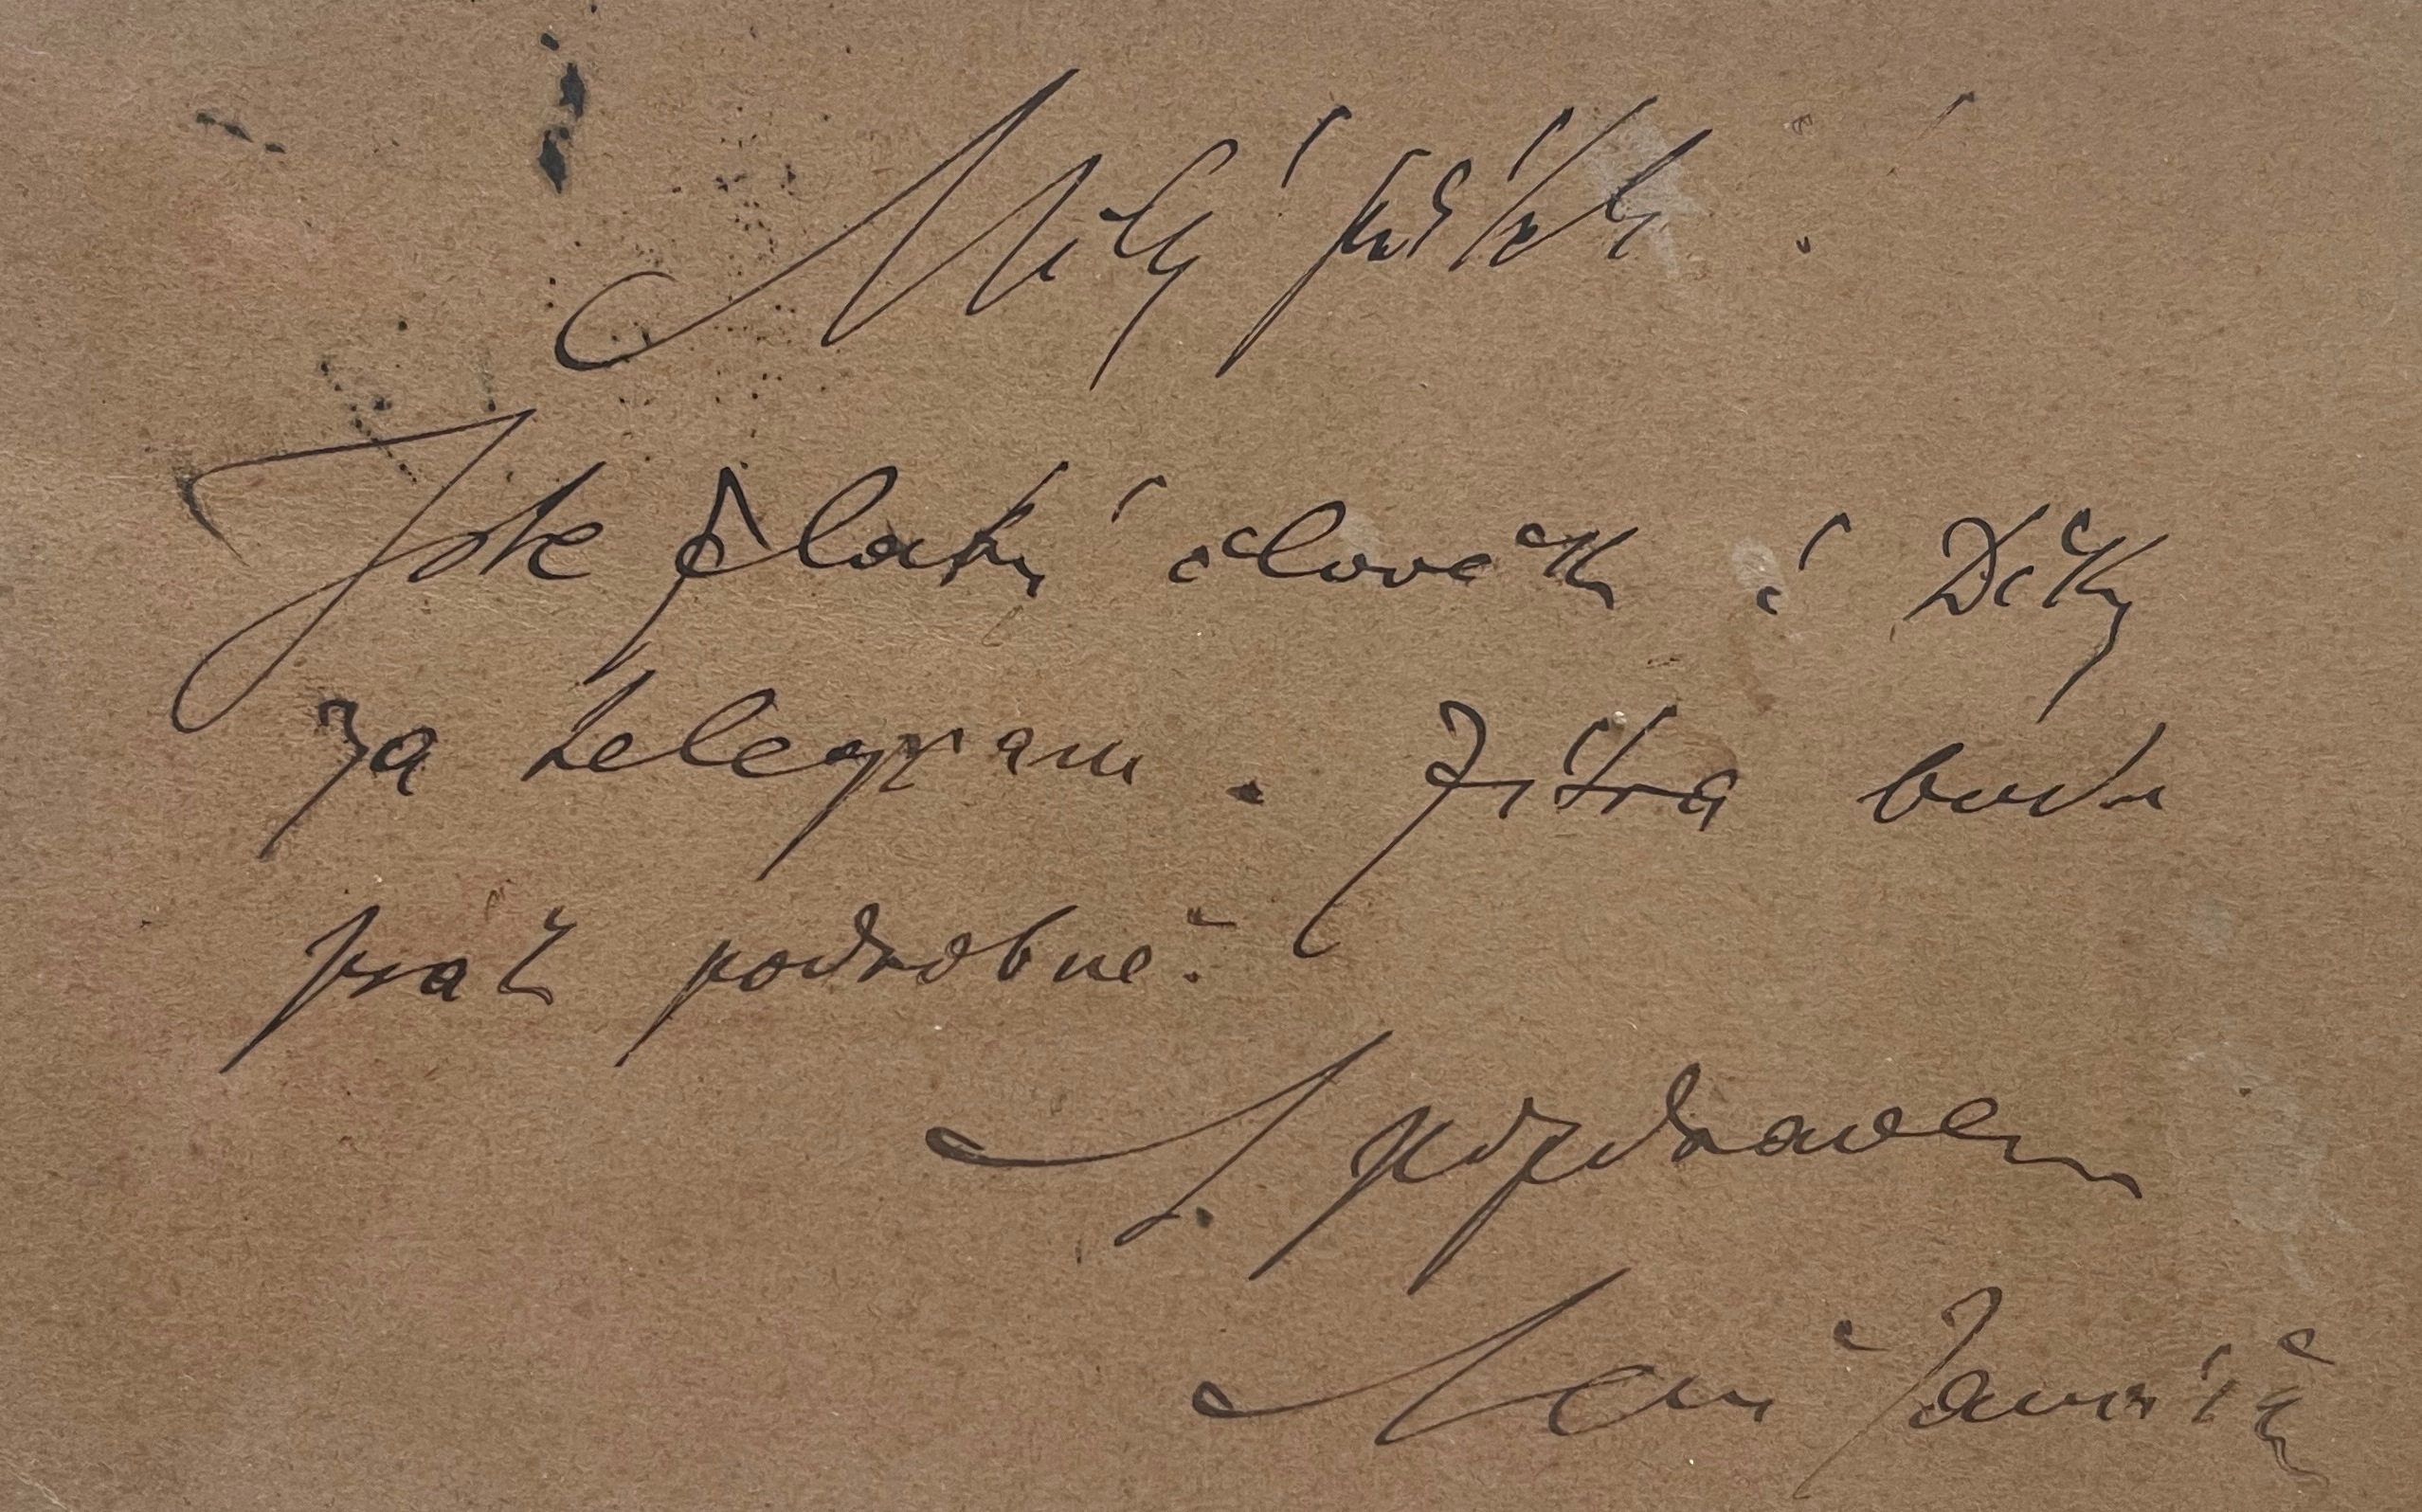 Milý příteli!
Jste zlatý člověk! Díky
za telegram. Zítra budu
psát podrobně.
S pozdravem
Leoš Janáček